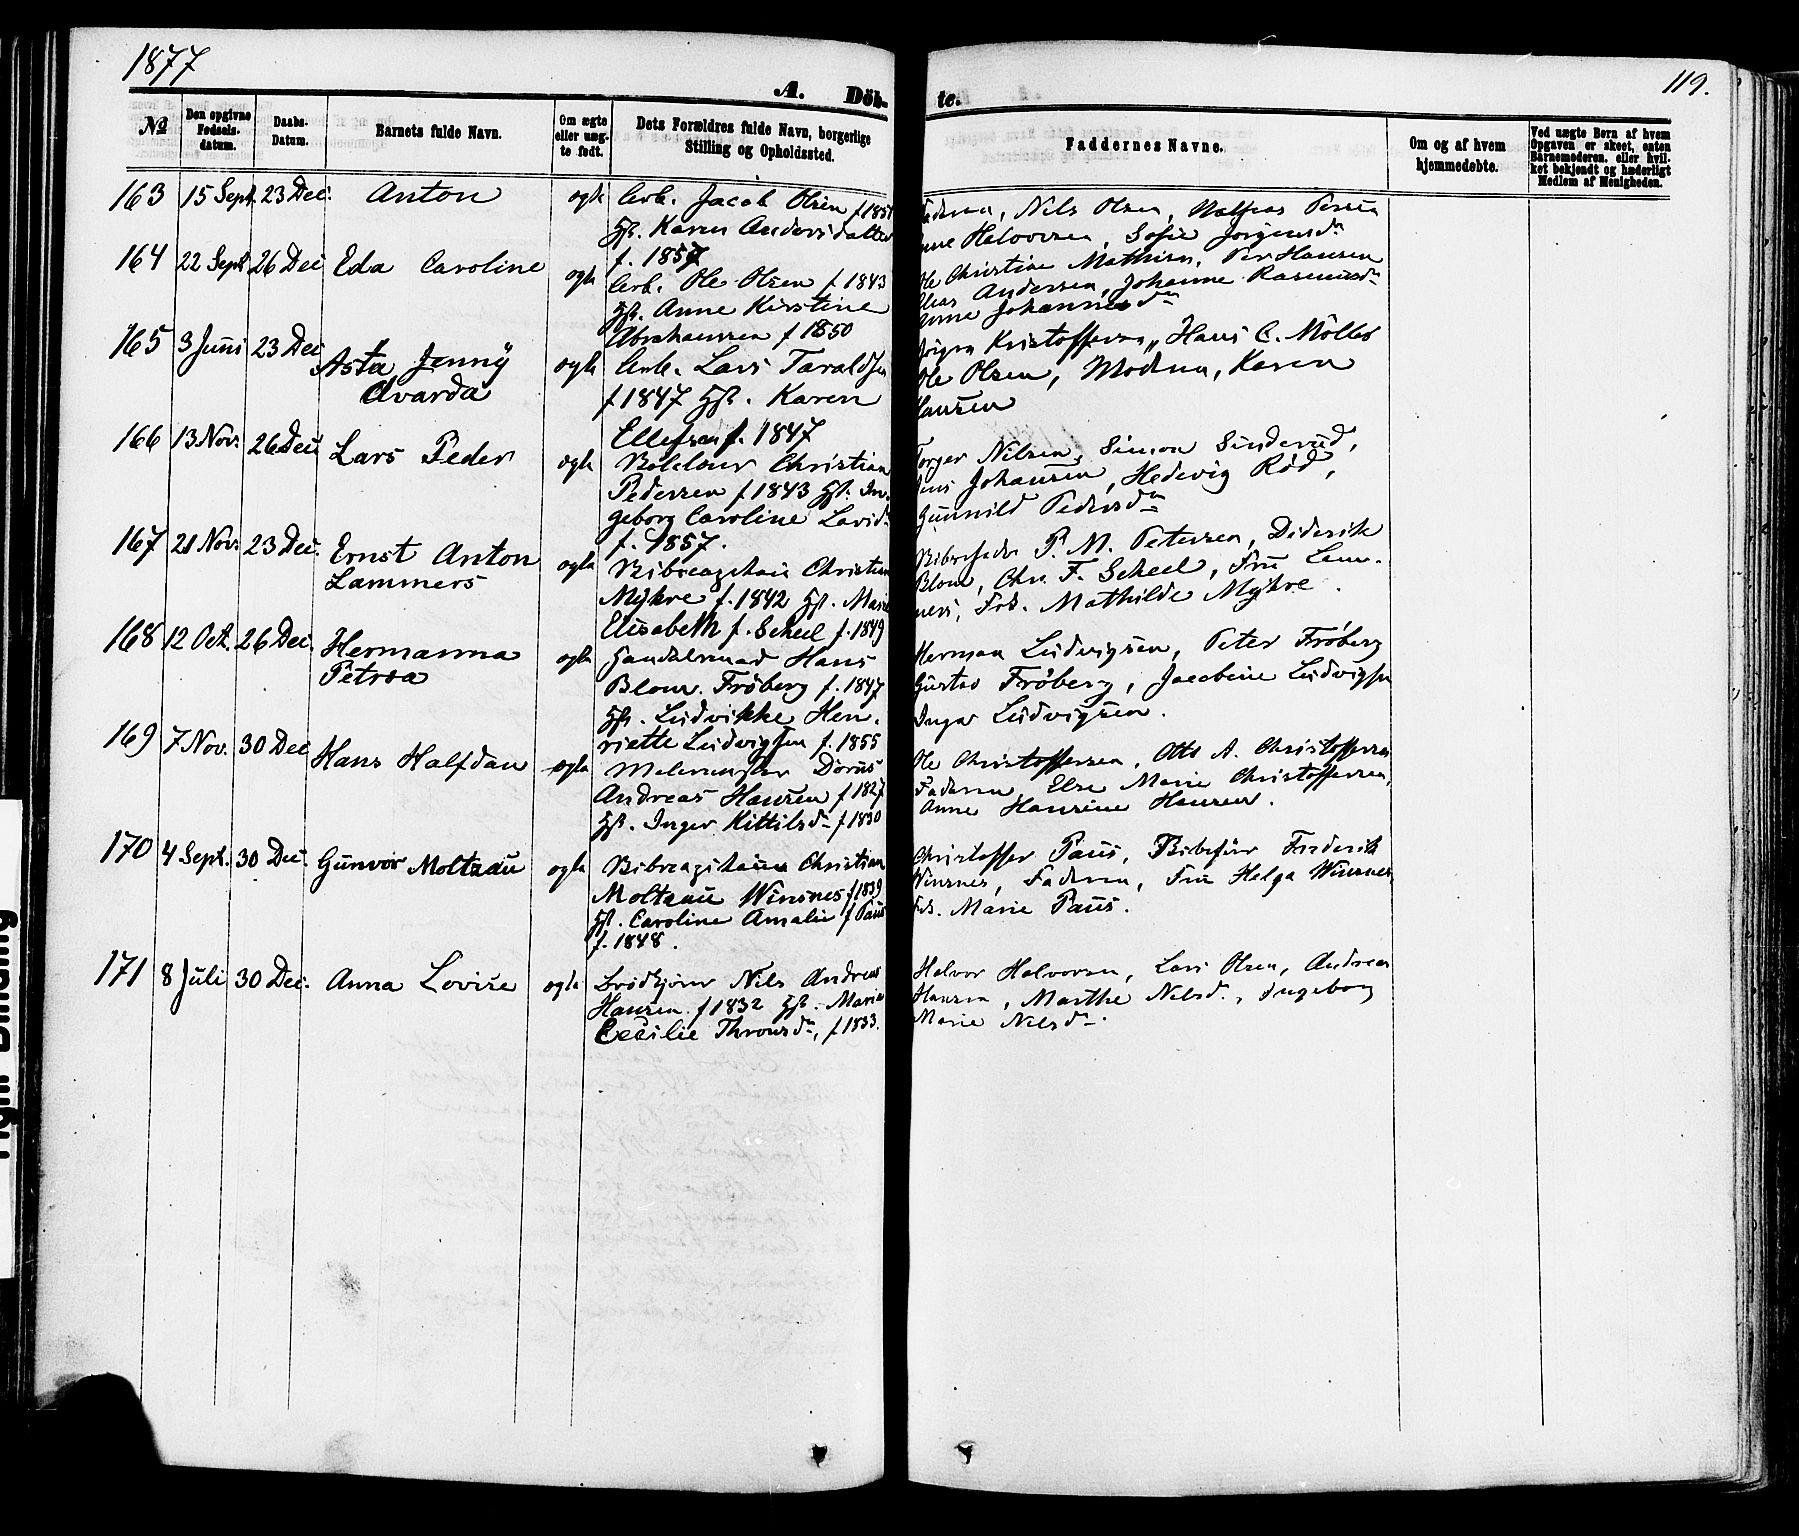 1877
119.
A. Döb-
te.
No
Den opgivne Fødsels-datum.
Daabs-Datum.
Barnets fulde Navn.
Om ægte eller uæg-te født.
Dets Forældres fulde Navn, borgerlige Stilling og Opholdssted.
Faddernes Navne.
Om og af hvem hjemmedøbte.
Ved uægte Børn af hvem Opgaven er skeet, enten Barnemoderen, eller hvil-ket bekjendt og hæderligt Medlem af Menigheden.
163 15 Sept. 23 Dec. Anton ægte Arb. Jacob Olsen f 1851
Hst. Karen Andersdatter
f. 1857
Faderen, Nils Olsen, Mathias
Halvorsen, Sofie Jørgensdn
164 22 Sept. 26 Dec Eda Caroline ægte Arb. Ole Olsen f 1843
Hst. Anne Kirstine
Abrahamsen f 1850
Ole Christine Mathisn, Per Hansen
Andersen, Johanne Rasmusdn
Anne Johannesdn
165 3 Juni 23 Dec Asta Jenny
Avarda
ægte Arb. Lars Taraldsen
f 1847 Hst. Karen
Ellefsen f. 1847
Jørgen Kristoffersen, Hans C. Möller
Ole Olsen, Moderen, Karen
Hansen
166 13 Nov. 26 Dec Lars Peder ægte Christian
Pedersen f 1843 Hst. In-
geborg Caroline Larsd
f. 1857.
Torger Nilsen, Simon Sunderud,
Jens Johansen, Hedevig Rød,
Gunnild Pedersdn
167 21 Nov. 23 Dec. Ernst Anton
Lammers
ægte Skibscaptain Christian
Myhre f. 1842 Hst. Marie
Elisabeth f. Scheel f. 1849
Skibsreder P. M. Petersen, Diderik
Blom, Chr. F. Scheel, Fru Lam-
mers, Frk. Mathilde Myhre.
168 12 Oct. 26 Dec. Hermanna
Petrea
ægte Handelsmand Hans
Blom Frøberg f. 1847
Hst. Ludvikke Hen-
riette Ludvigsen f. 1855
Herman Ludvigsen, Peter Frøberg
Gustav Frøberg, Jacobine Ludvigsen
Inga Ludvigsen.
169 7 Nov. 30 Dec Hans Halfdan ægte Malermester Dorus
Andreas Hansen f 1827
Hst. Inger Kittilsdn f 1830
Ole Christoffersen, Otto A. Christoffersen
Faderen, Else Marie Christoffersen,
Anne Hansine Hansen.
170 4 Sept. 30 Dec. Gunvor Moltzau ægte Skibscaptain Christian
Moltzau Winsnes f 1839
Hst. Caroline Amalie f Paus
f. 1848.
Christoffer Paus, Skibsfører Frederik
Winsnes, Faderen, Fru Helga Winsnes,
Frk. Marie Paus.
171 8 Juli 30 Dec. Anna Lovise ægte Brødkjører Nils Andreas
Hansen f 1832 Hst. Maria
Cecilie Thronsdn, f 1833.
Halvor Halvorsen, Lars Olsen, Andreas
Hansen, Marthe Nilsd., Ingeborg
Marie Nilsdn.